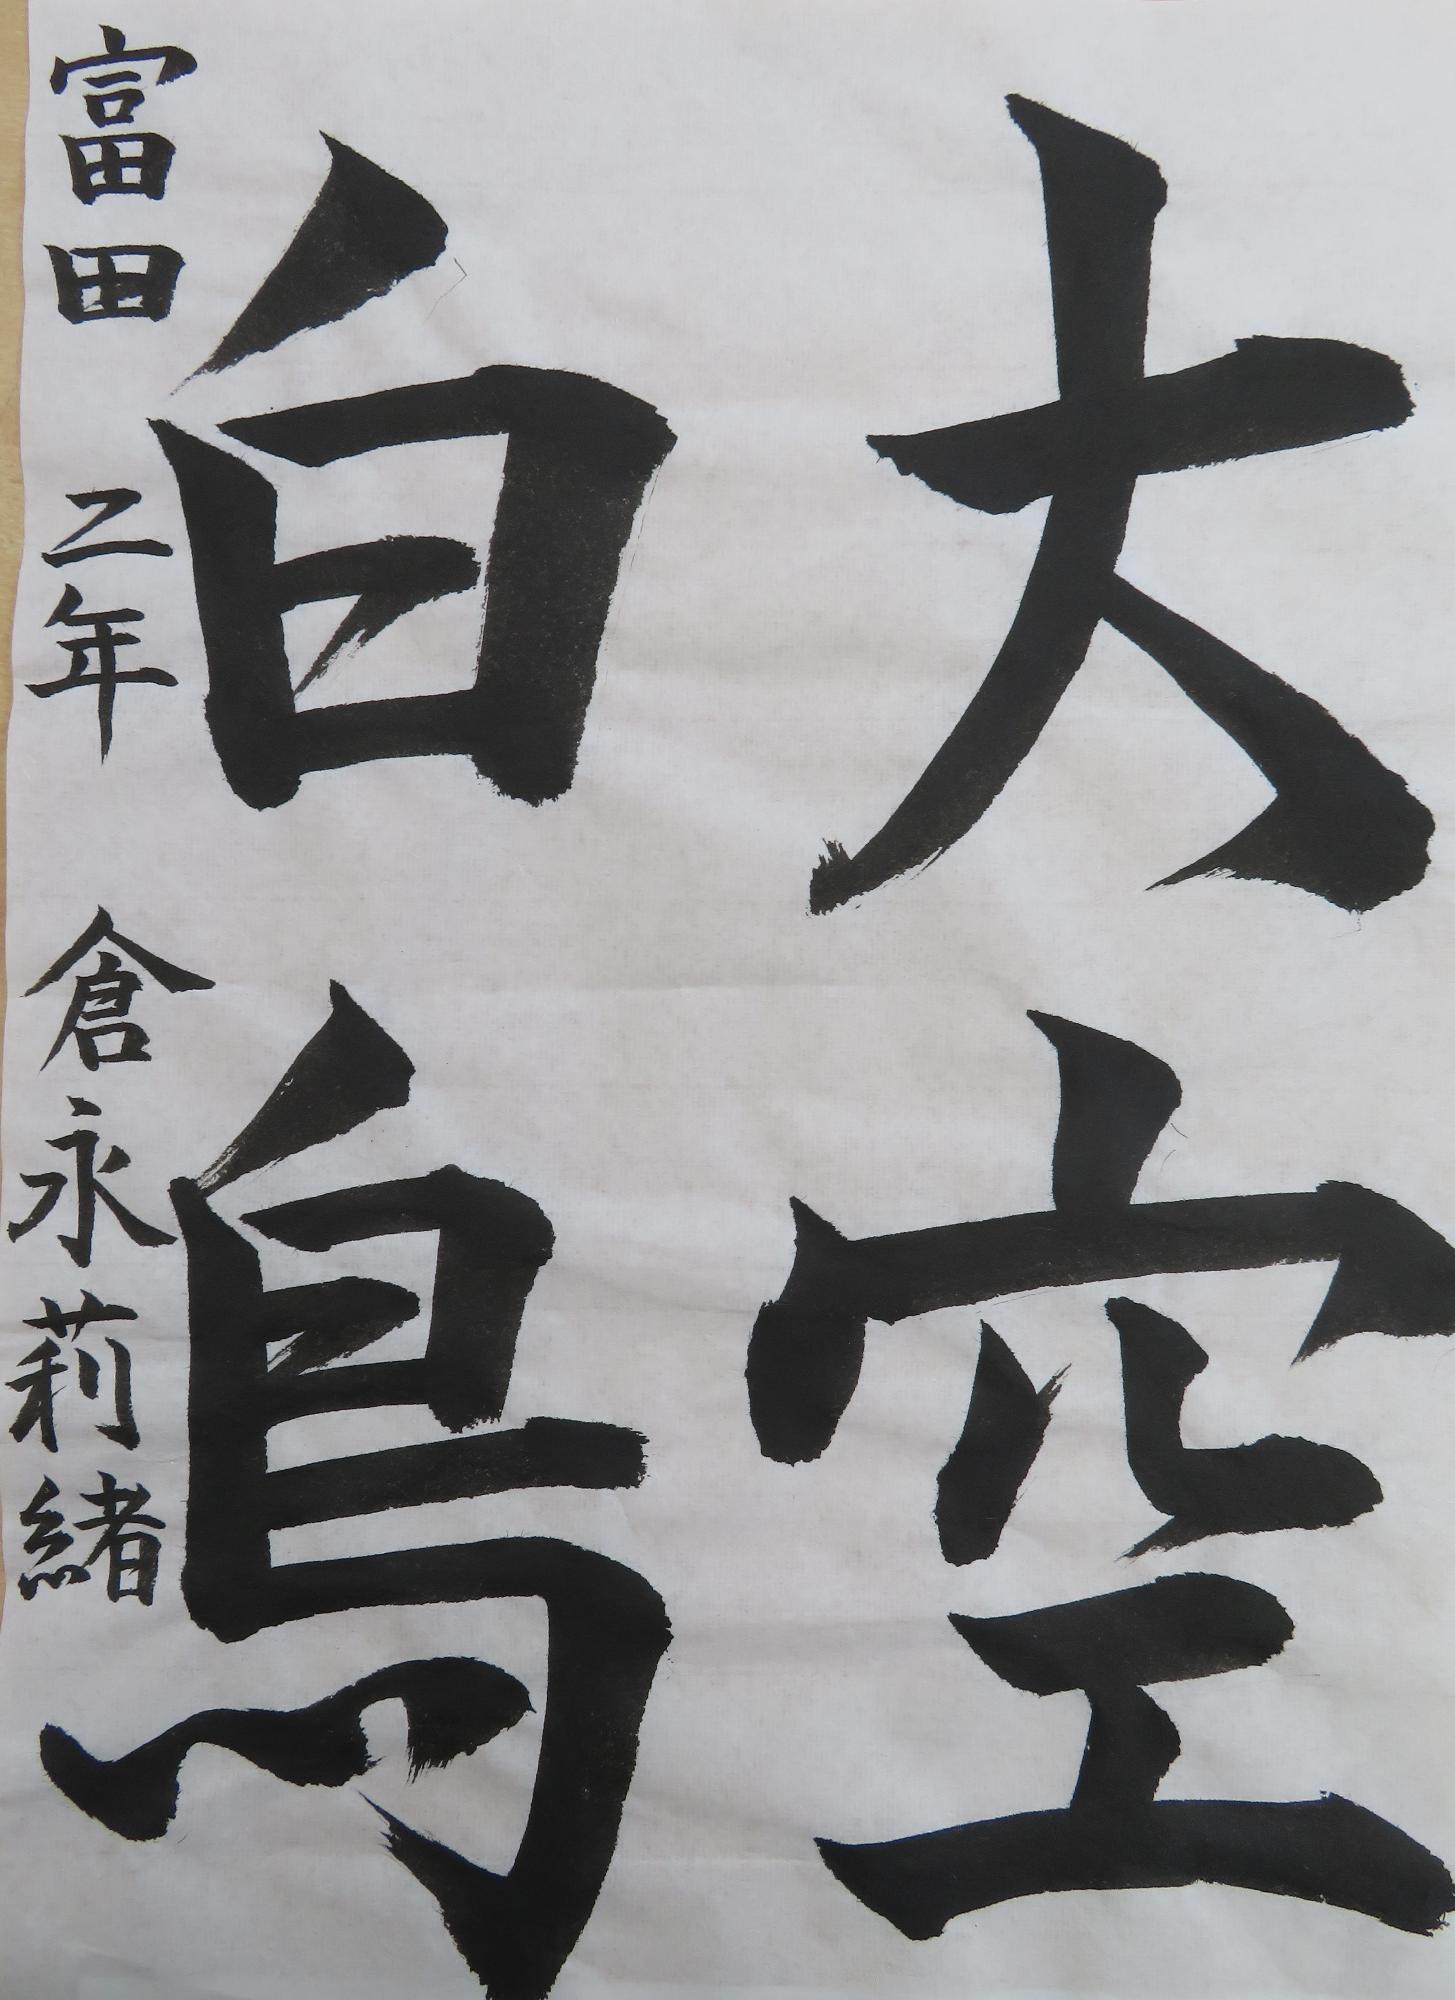 大空
白鳥
富田 二年 倉永莉緒